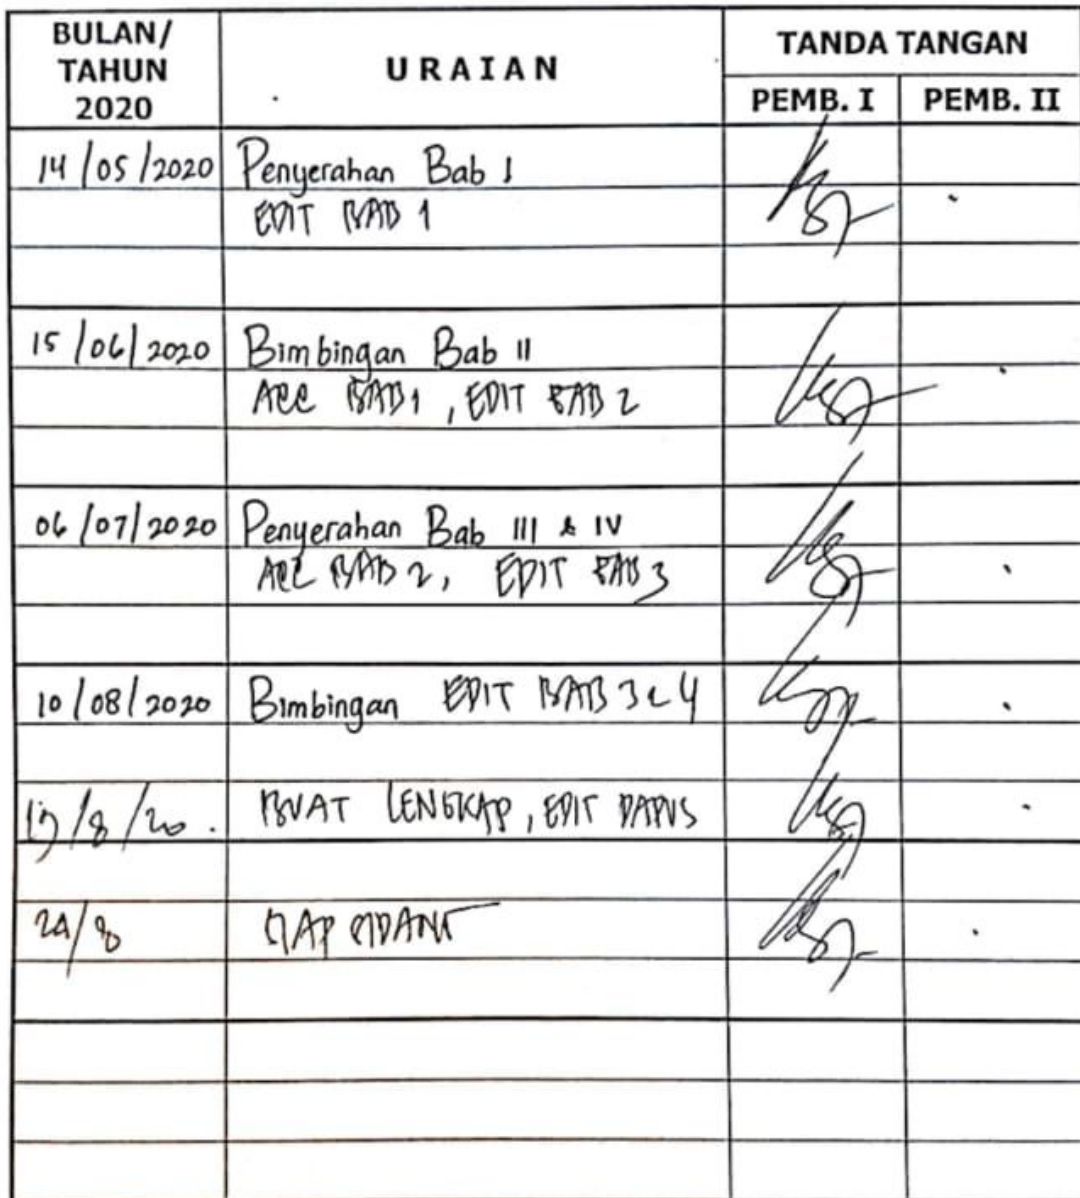 BULAN/
TAHUN
2020
URAIAN
TANDA TANGAN
PEMB. I
PEMB. II
14/05/2020 Penyerahan Bab I
EDIT BAB 1
15/06/2020 Bimbingan Bab II
ACC BAB 1, EDIT BAB 2
06/07/2020 Penyerahan Bab III & IV
ACC BAB 2, EDIT BAB 3
10/08/2020 Bimbingan EDIT BAB 3 & 4
/8/20. BUAT LENGKAP, EDIT DAPUS
24/8 SIAP SIDANG